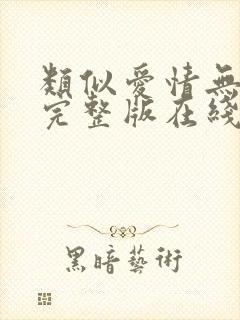 類似愛情無
完整版在綫
黑暗藝術